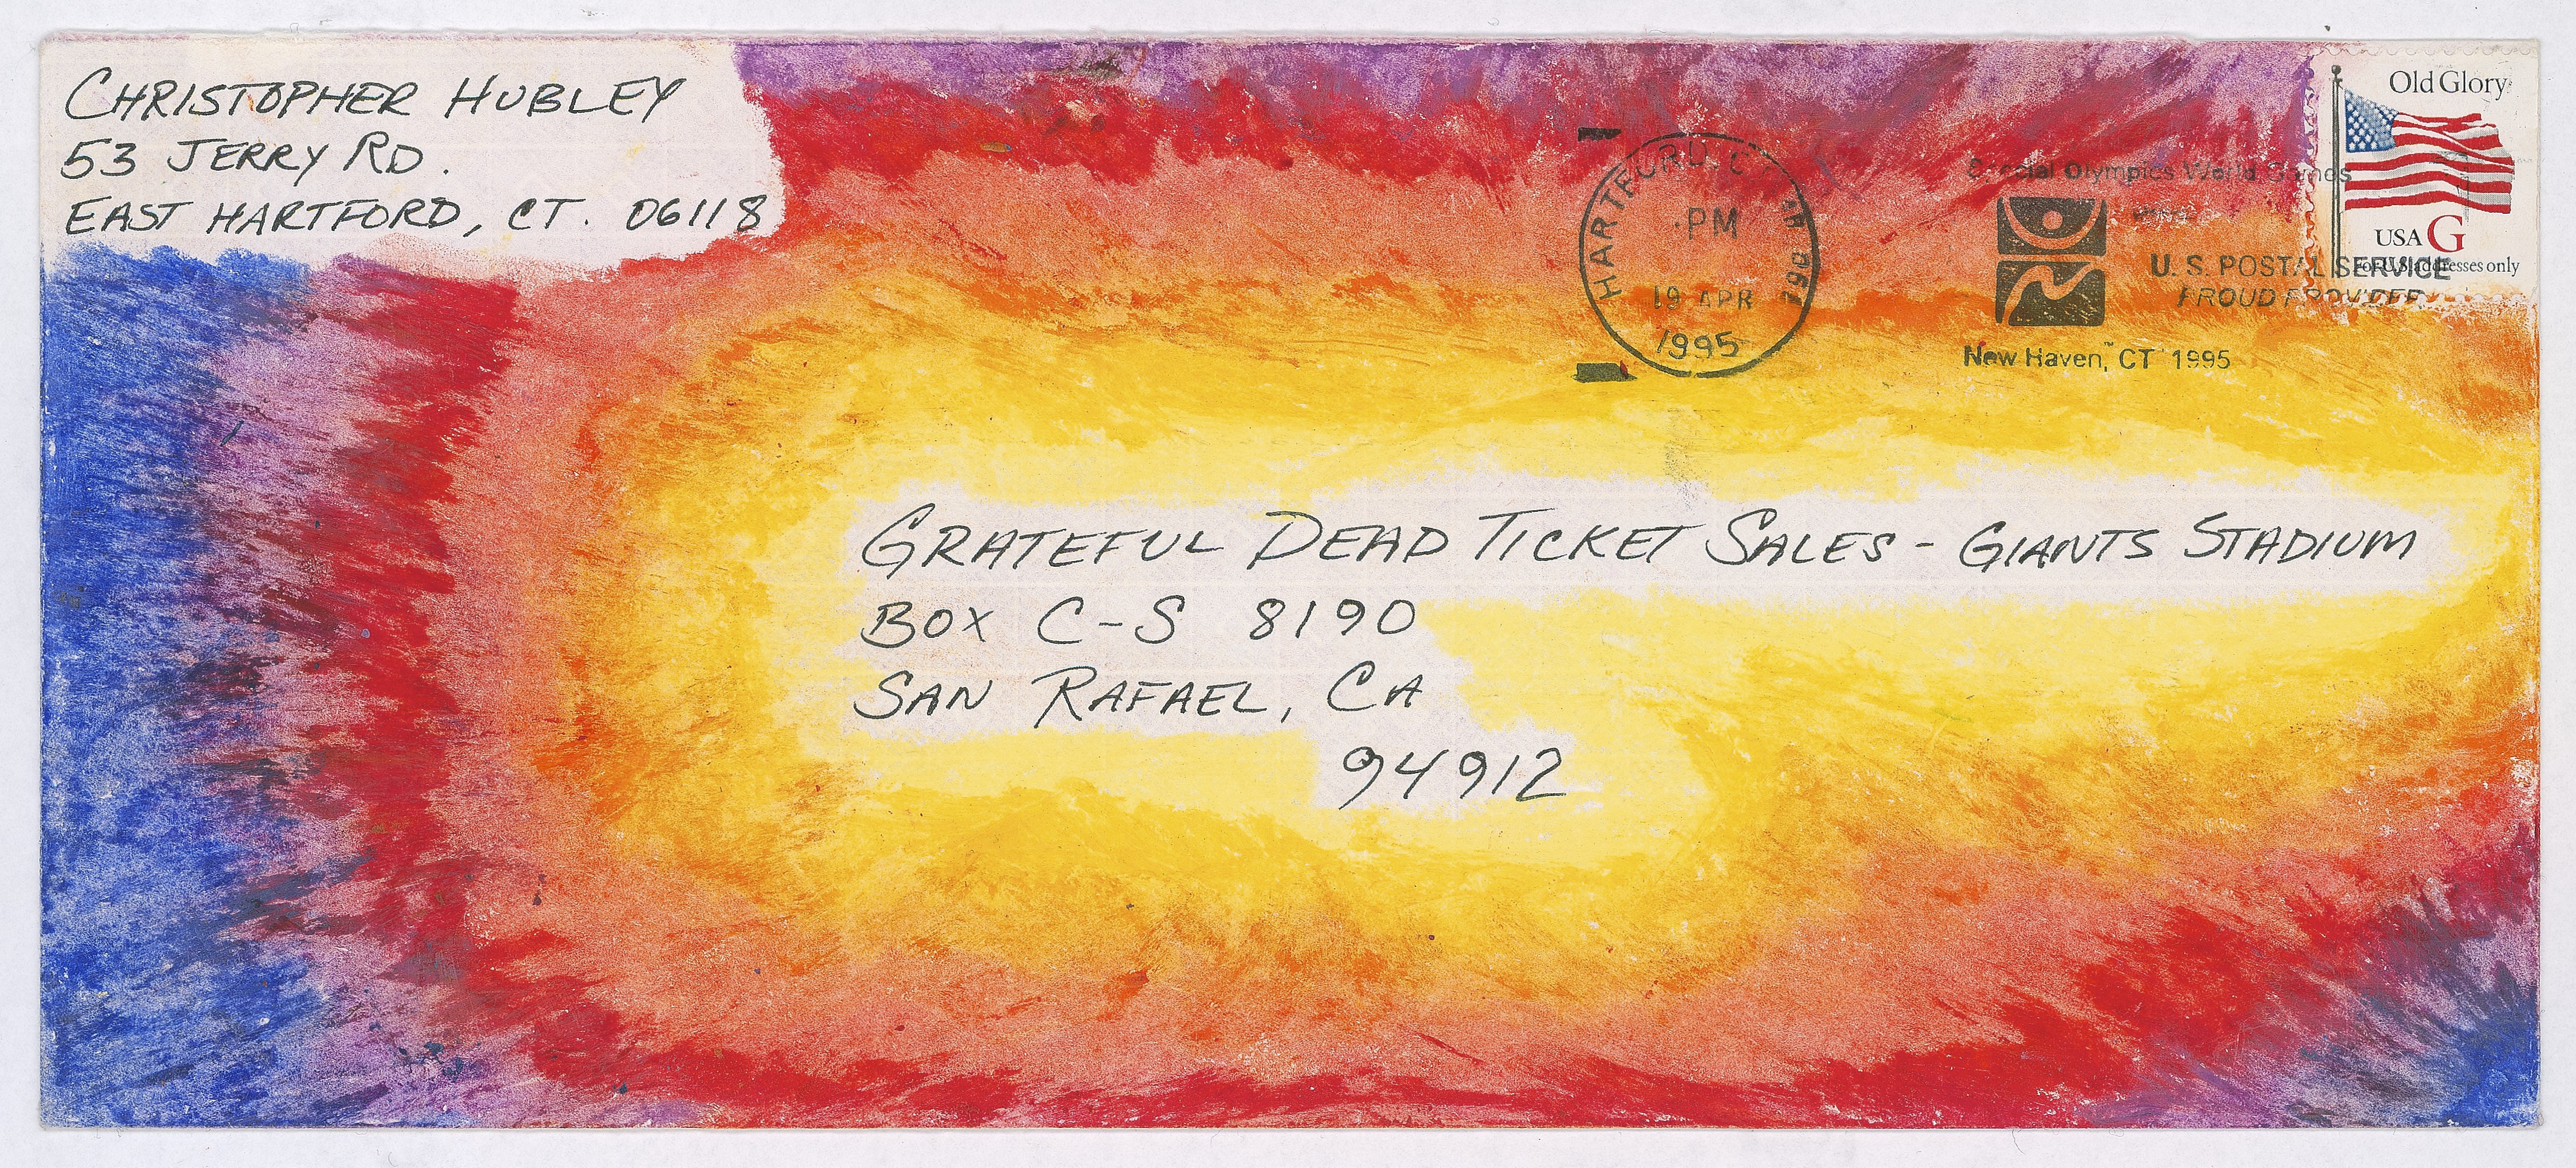 CHRISTOPHER HUBLEY
53 JERRY RD.
EAST HARTFORD, CT. 06118
Old Glory
USA G
For U.S. addresses only
HARTFORD, C
PM
19 APR
1995
Special Olympics World Games
U. S. POSTAL SERVICE
PROUD PROVIDER
New Haven, CT 1995
GRATEFUL DEAD TICKET SALES - GIANTS STADIUM
BOX C-S 8190
SAN RAFAEL, CA
94912